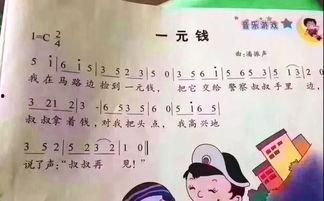 音乐游戏
一元钱
1=C 2/4
曲:潘振声
5 i | 6 i 5 | 3 5 2 3 | 5 0 | 3 5 6 5 | 3 5 6 5 3 | 5 i 3 | 2 0 |
我在马路边捡到一元钱, 把它交给警察叔叔手里边,
3 21 2 3 | - 6 53 5 6 | 0 5 3 5 |
叔叔拿着钱,对我把头点, 我高兴地
3 5 2 | 5 2 3 2 | 1 0 ‖
说了声:“叔叔再 见!”